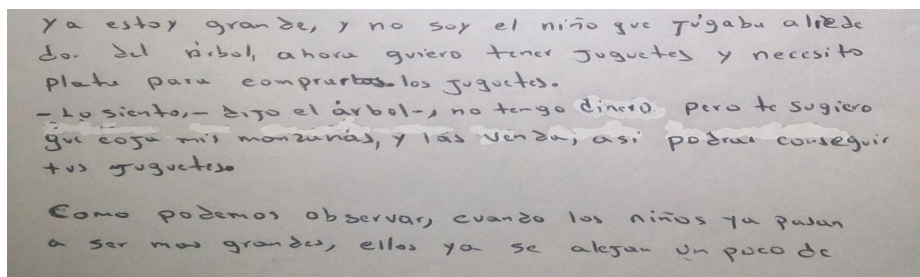 ya estoy grande, y no soy el niño que jugaba alrede
dor del árbol, ahora quiero tener juguetes y necesito
plata para comprarlos los juguetes.
-Lo siento,- dijo el árbol-, no tengo dinero pero te sugiero
que coja mis manzanas, y las venda, asi podras conseguir
tus juguetes.
Como podemos observar, cuando los niños ya pasan
a ser mas grandes, ellos ya se alejan un poco de